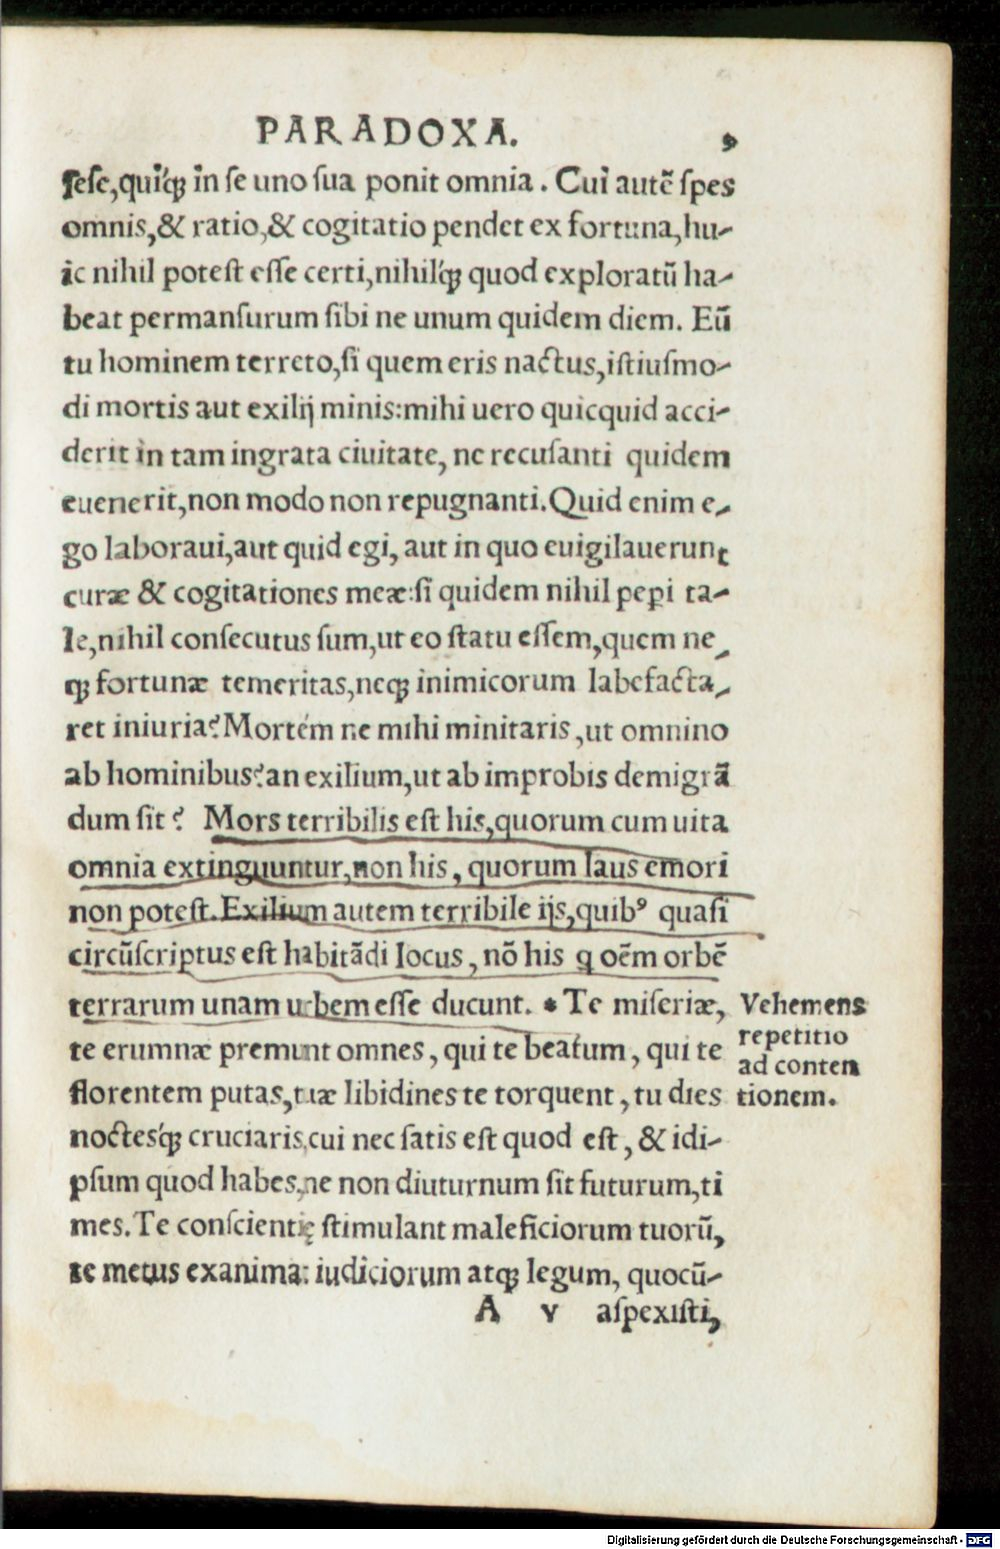 PARADOXA. 9
sese,quiq́ꝫ in se uno sua ponit omnia. Cui autē spes
omnis,& ratio,& cogitatio pendet ex fortuna,hu-
ic nihil potest esse certi,nihilq́ꝫ quod exploratū ha-
beat permansurum sibi ne unum quidem diem. Eū
tu hominem terreto,si quem eris nactus,istiusmo-
di mortis aut exilij minis:mihi uero quicquid acci-
derit in tam ingrata ciuitate, ne recusanti quidem
euenerit,non modo non repugnanti.Quid enim e-
go laboraui,aut quid egi, aut in quo euigilauerunt
curæ & cogitationes meæ:si quidem nihil peperi ta-
le,nihil consecutus sum,ut eo statu essem,quem ne-
qꝫ fortunæ temeritas,neqꝫ inimicorum labefacta-
ret iniuria?Mortém ne mihi minitaris,ut omnino
ab hominibus?an exilium,ut ab improbis demigrā
dum sit? Mors terribilis est his,quorum cum uita
omnia extinguuntur,non his, quorum laus emori
non potest.Exilium autem terribile ijs,quibꝰ quasi
circūscriptus est habitādi locus, nō his q oēm orbē
terrarum unam urbem esse ducunt. * Te miseriæ,
te erumnæ premunt omnes, qui te beatum, qui te
florentem putas,tuæ libidines te torquent, tu dies
noctesq́ꝫ cruciaris,cui nec satis est quod est, & idi-
psum quod habes,ne non diuturnum sit futurum,ti
mes.Te conscientię stimulant maleficiorum tuorū,
te metus exanimat iudiciorum atqꝫ legum, quocū-
A v aspexisti,
Vehemens
repetitio
ad conten
tionem.
Digitalisierung gefördert durch die Deutsche Forschungsgemeinschaft - DFG